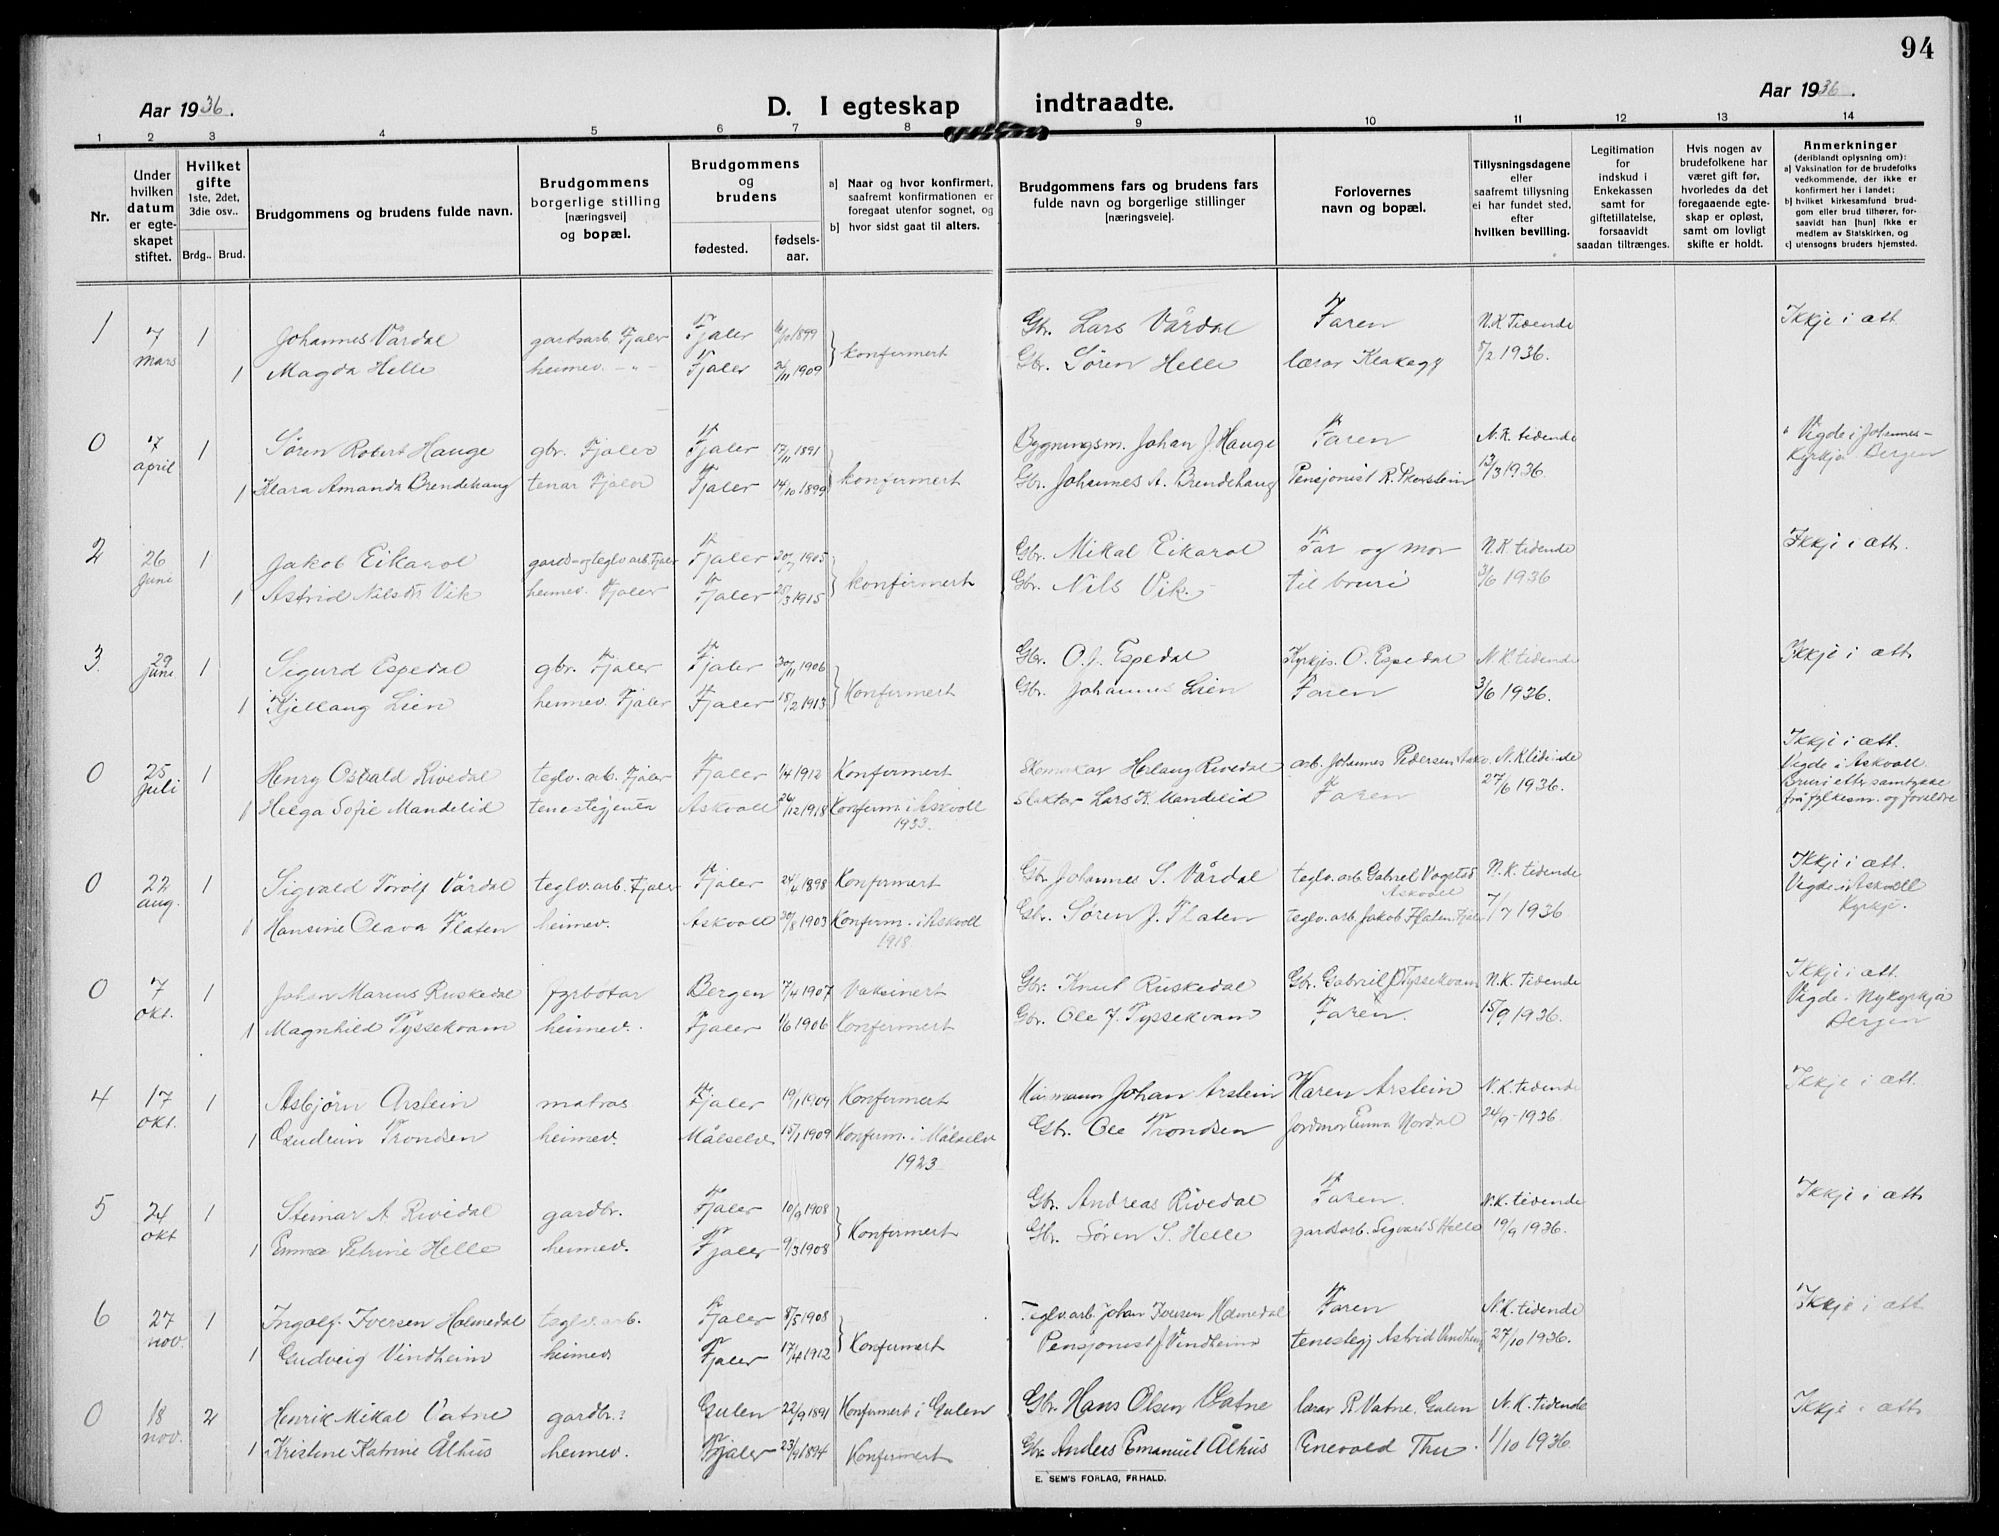 94
Aar 1936.
D. I egteskap indtraadte.
Aar 1936.
1 2 3 4 5 6 7 8 9 10 11 12 13 14
Nr.
Under hvilken datum er egteskapet stiftet.
Hvilket gifte 1ste, 2det, 3die osv..
Brdg.. Brud.
Brudgommens og brudens fulde navn.
Brudgommens borgerlige stilling [næringsvei] og bopæl.
Brudgommens og brudens
fødested. fødselsaar.
a) Naar og hvor konfirmert, saafremt konfirmationen er foregaat utenfor sognet, og
b) hvor sidst gaat til alters.
Brudgommens fars og brudens fars fulde navn og borgerlige stillinger [næringsveie].
Forlovernes navn og bopæl.
Tillysningsdagene eller saafremt tillysning ei har fundet sted, efter hvilken bevilling.
Legitimation for indskud i Enkekassen samt for giftetillatelse, forsaavidt saadan tiltrænges.
Hvis nogen av brudefolkene har været gift før, hvorledes da det foregaaende egteskap er opløst, samt om lovligt skifte er holdt.
Anmerkninger (deriblandt oplysning om):
a) Vaksination for de brudefolks vedkommende, der ikke er konfirmert her i landet;
b) hvilket kirkesamfund brudgom eller brud tilhører, forsaavidt han [hun] ikke er medlem av Statskirken, og
c) utensogns bruders hjemsted.
1 7 mars 1 Johannes Vårdal gardsarb. Fjaler Fjaler 1899 konfirmert Gbr. Lars Vårdal Faren N.K Tidende Ikkje i ætt
1 Magda Helle heimev. -"- Fjaler 26/11 1909 Gbr. Søren Helle lærar Klakegg 5/2 1936.
0 7 april 1 Søren Robert Hauge gbr. Fjaler Fjaler 17/11 1891 konfirmert Bygningsm. Johan J Hauge Faren N.K. tidende Vigde i Johannes-
1 Klara Amanda Brendehaug tenar Fjaler Fjaler 14/10 1899 Gbr. Johannes A. Brendehaug Pensjonist R. 13/3 1936. Kyrkja Bergen
2 26 juni 1 Jakob Eikarol gards- og teglv.arb. Fjaler Fjaler 1905 konfirmert Gbr. Mikal Eikarol Far og mor N.K tidende Ikkje i ætt.
1 Astrid Vik heimev. Fjaler Fjaler 25/3 1915 Gbr. Nils Vik. til bruri 3/6 1936
3. 29 juni 1 Sigurd Espedal gbr. Fjaler Fjaler 30/11 1906 Konfirmert Gbr. O. J. Espedal Kyrkjes. O. Espedal N.K tidende Ikkje i ætt
1 Kjellaug Lien heimev. Fjaler Fjaler 18/2 1913 Gbr. Johannes Lien Faren 3/6 1936.
0 25 juli 1 Henry Osvald Rivedal teglv.arb. Fjaler Fjaler 1/4 1912 Konfirmert Skomakar Herlaug Rivedal arb. Johannes Pedersen N.K tidende Ikkje i ætt.
Vigde i Askvoll
1 Helga Sofie Mandelid tenestejente Askvoll 26/12 1918 Konfirm. i Askvoll 1933. Slaktar Lars K. Mandelid Faren 27/6 1936. Bruri etter samtykke
frå fylkesm. og foreldre
0 22 aug. 1 Sigvald Torolf Vårdal teglv.arb. Fjaler Fjaler 24/4 1898 Konfirmert Gbr. Johannes S. Vårdal teglv.arb Gabriel Askvoll N.K. tidende Ikkje i ætt.
1 Hansine Olava Flaten heimev. Askvoll 30/8 1903 Konfirm. i Askvoll 1918 Gbr. Søren J. Flaten teglv.arb. Jakob Flaten Fjaler 7/7 1936 Vigde i Askvoll
Kyrkje.
0 7 okt. 1 Johan Marius Ruskedal fyrbøtar Bergen 7/4 1907 Vaksinert Gbr. Knut Ruskedal Gbr. Gabriel J Tyssekvam N.K. tidende Ikkje i ætt.
1 Magnhild Tyssekvam heimev. Fjaler 1/6 1906 Konfirmert Gbr. Ole J. Tyssekvam Faren 15/9 1936. Vigde i Nykyrkja
Bergen
4 17 okt. 1 Asbjørn Arstein matros Fjaler 19/1 1904 Konfirmert Johan Arstein Karen Arstein N.K. tidende Ikkje i ætt.
1 Gudrun Trondsen heimev. Målselv 15/1 1909 Konfirm. i Målselv 1923 Gbr. Ole Trondsen Jordmor Emma Nordal 24/9 - 1936.
5 24 okt 1 Steinar A Rivedal gardbr. Fjaler 10/9 1908 Konfirmert Gbr. Andreas Rivedal Faren. N.K. tidende Ikkje i ætt
1 Emma Petrine Helle heimev. Fjaler 9/3 1908 Gbr. Søren S. Helle gardsarb. Sigvart S Helle 19/9 1936.
6 27 nov. 1 Ingolf Iversen Holmedal teglv.arb. Fjaler 8/5 1908 Konfirmert Teglv.arb. Johan Iversen Holmedal Faren N.K. tidende Ikkje i ætt
1 Gudveig Vindheim heimev Fjaler 17/4 1912 Pensjonist J Vindheim tenestegj Astrid Vindheim 27/10 1936.
0 18 nov. 2 Henrik Mikal Vatne gardbr. Gulen 22/9 1891 Konfirmert i Gulen Gbr. Hans Olsen Vatne lærar R Vatne, Gulen N.K. tidende Ikkje i ætt
1 Kristine Katrine Ålhus heimev. Fjaler 23/9 1894 Konfirmert Gbr. Anders Emanuel Ålhus Enevald Thu. 1/10 1936.
E. SEM'S FORLAG, FR.HALD.